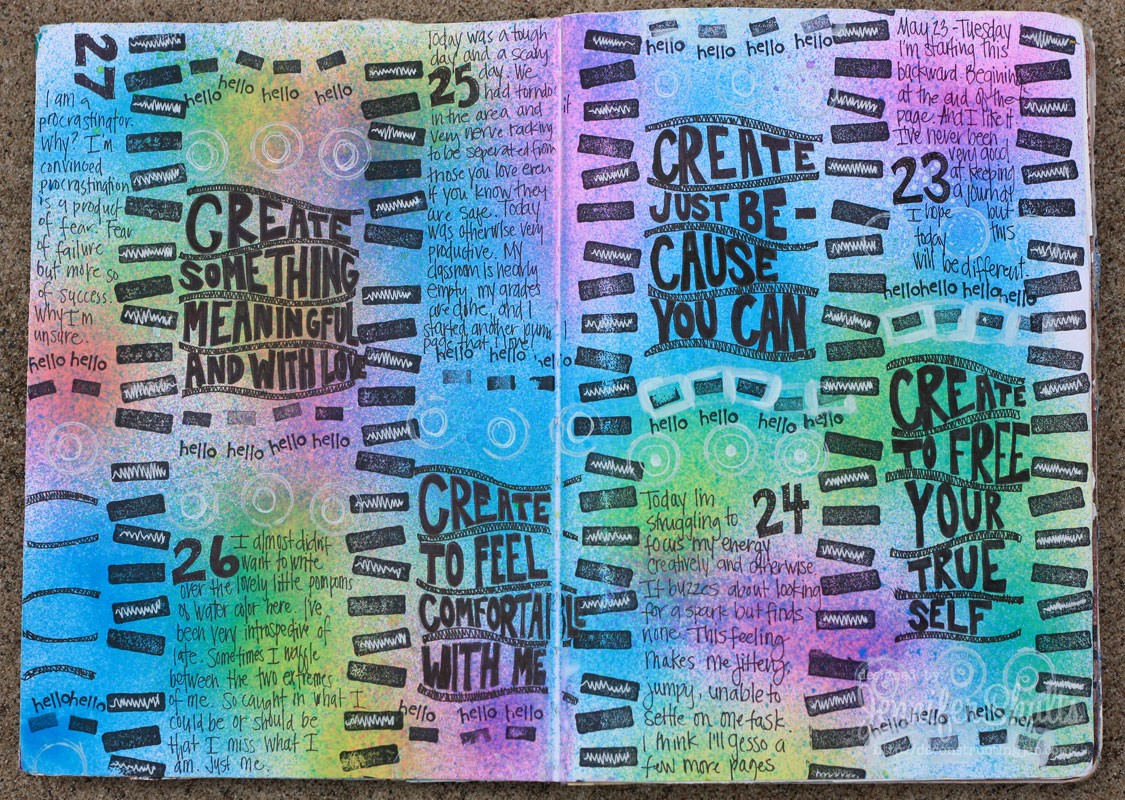 27
I am a
procrastinator.
Why? I'm
convinced
procrastination
is a product
of fear. Fear
of failure
but more so
of success.
Why I'm
unsure.
hello hello
hello hello hello hello
CREATE
SOMETHING
MEANINGFUL
AND WITH LOVE
hello hello hello hello
Today was a tough
day and a scary
25 day. We
had tornado
in the area and
very nerve racking
to be seperated from
those you love even
if you know they
are safe. Today
was otherwise very
productive. My
classroom is nearly
empty, my grades
are done, and I
started another
page that I love!
hello hello hello
26 I almost didn't
want to write
over the lovely little pompoms
of water color here. I've
been very introspective of
late. Sometimes I waffle
between the two extremes
of me. So caught in what I
could be or should be
that I miss what I
am. Just me.
hello hello
CREATE
TO FEEL
COMFORTABLE
WITH ME
hello hello hello
hello hello hello hello
CREATE
JUST BE-
CAUSE
YOU CAN
hello hello hello hello
Today I'm
24
struggling to
focus my energy
creatively and otherwise
It buzzes about looking
for a spark but finds
none. This feeling
makes me jittery,
jumpy, unable to
settle on one task.
I think I'll gesso a
few more pages
May 23 - Tuesday
I'm starting this
backward. Begining
at the end of the
page. And I like it.
I've never been
23 very good
at keeping
a journal
I hope but
today this
will be different.
hello hello hello hello
CREATE
TO FREE
YOUR
TRUE
SELF
designed by
jennifer shults
hello hello hello hello